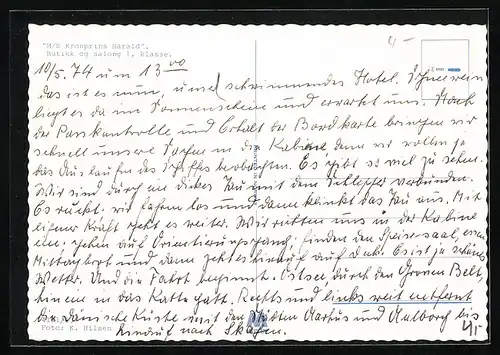 "M/S Kronprins Harald".
Butikk og salong 1. klasse.
4-
10/5. 74 um 13 00
das ist es nun, unser schwimmendes Hotel. Schneeweiß
liegt es da im Sonnenschein und erwartet uns. Nach
der Passkontrolle und Erhalt der Bordkarte bringen wir
schnell unsere Sachen in die Kabine denn wir wollen ja
das Auslaufen des Schiffes beobachten. Es gibt so viel zu sehen.
Wir sind durch ein dickes Tau mit dem Schlepper verbunden.
Es ruckt. wir fahren los und dann klinkt das Tau aus. Mit
eigner Kraft geht es weiter. Wir richten uns in der Kabine
ein. gehen auf Orientierungsgang, finden den Speisesaal, essen
Mittagbrot und dann geht es hinauf auf Deck. Es ist ja schönes
Wetter. Und die Fahrt beginnt. Ostsee, durch den Grossen Belt,
hinein in das Kattegatt. Rechts und links weit entfernt
die dänische Küste mit den Städten Aarhus und Aalborg bis
hinauf nach Skagen.
Foto: K. Nilsen